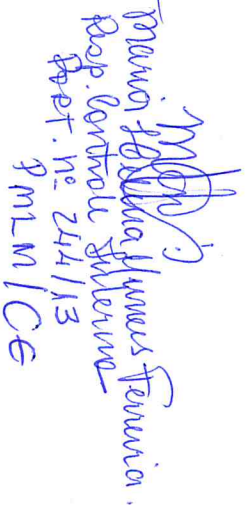 Maria Helena Nunes Ferreira.
Resp. Controle Interno
Port. nº 244/13
PMLN/CE